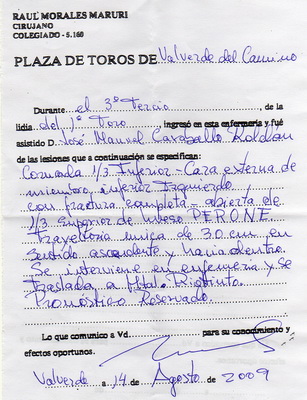 RAUL MORALES MARURI
CIRUJANO
COLEGIADO - 5.160
PLAZA DE TOROS DE Valverde del Camino
Durante el 3º Tercio, de la
lidia del 1º Toro ingresó en esta enfermería y fué
asistido D. José Manuel Caraballo Roldan
de las lesiones que a continuación se especifican:
Cornada 1/3 Inferior - Cara externa de
miembro inferior Izquierdo
con fractura completa - abierta de
1/3 Superior de hueso PERONE.
Trayectoria unica de 30 cm en
sentido ascendente y hacia dentro.
Se interviene en enfermeria y se
traslada a Htal. Riotinto.
Pronóstico Reservado.
Lo que comunico a Vd. para su conocimiento y
efectos oportunos.
Valverde a 14 de Agosto de 2009